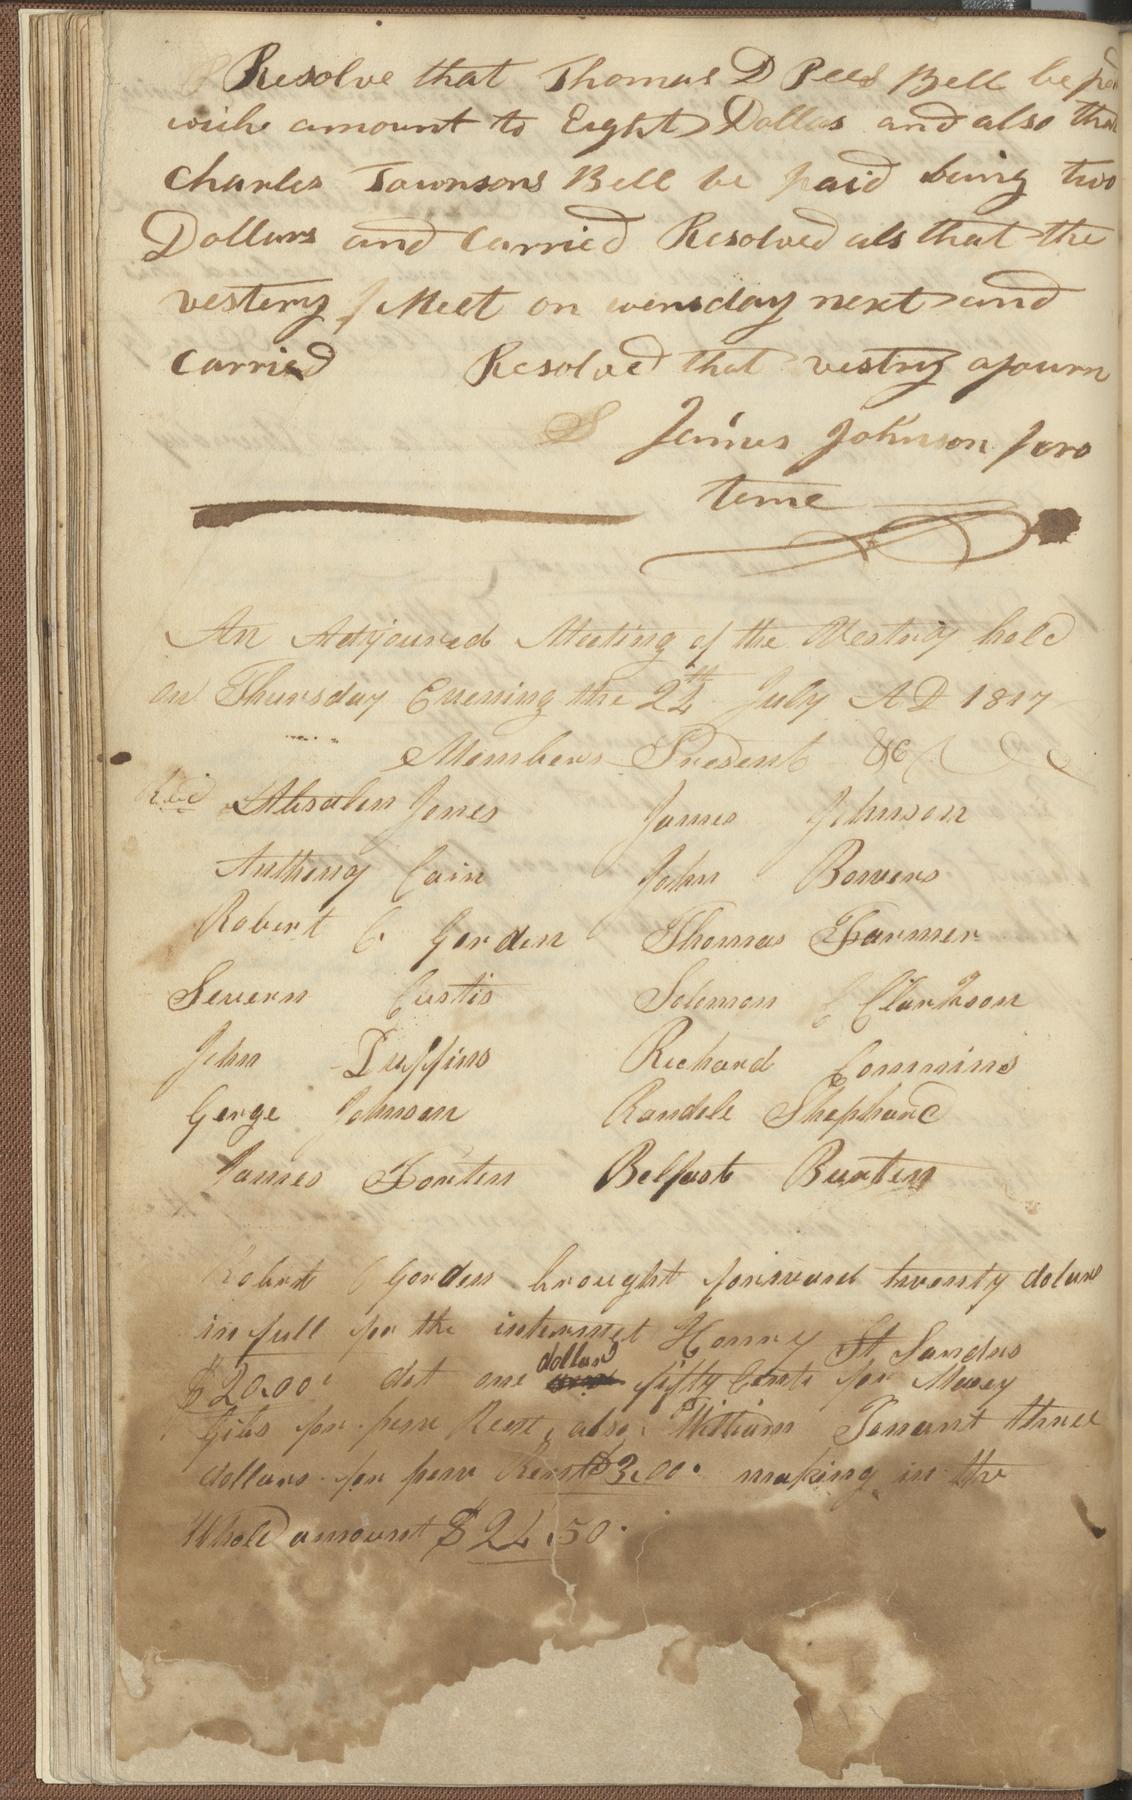 Resolve that Thomas D Pees Bell be pd
wich amount to Eight Dollas and also that
Charles Townsons Bell be paid being two
Dollars and Carried Resolved als that the
vestery Meet on wensday next and
Carried Resolved that vestry ajourn
James Johnson pro
teme
An Adjourned Meeting of the Vestry held
on Thursday Evening the 24th July AD 1817
Members Present &c
Revd Absalom Jones James Johnson
Anthony Cain John Bowers
Robert C Gorden Thomas Farmer
Severn Custis Solomon Clarkson
John Duffins Richard Commins
Gerge Johnson Randele Shephard
James Forten Belfast Burten
Robert C Gorden brought forward twenty dolars
in full for the interment Henry St Sandus
$20.00 dit one dollars fifty Cents for Mosey
Gibs for pew Rent, also William Tenant three
dollars for pew Rent $3.00. making in the
Whole amount $24.50.